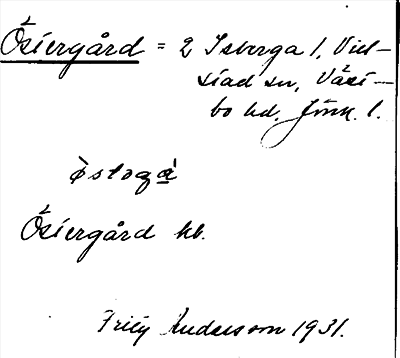 Östergård = 2 Isberga 1, Vill-
stad sn, Väst-
bo hd, Jönk. l.
Östergård hb.
Fritz Andersson 1931.